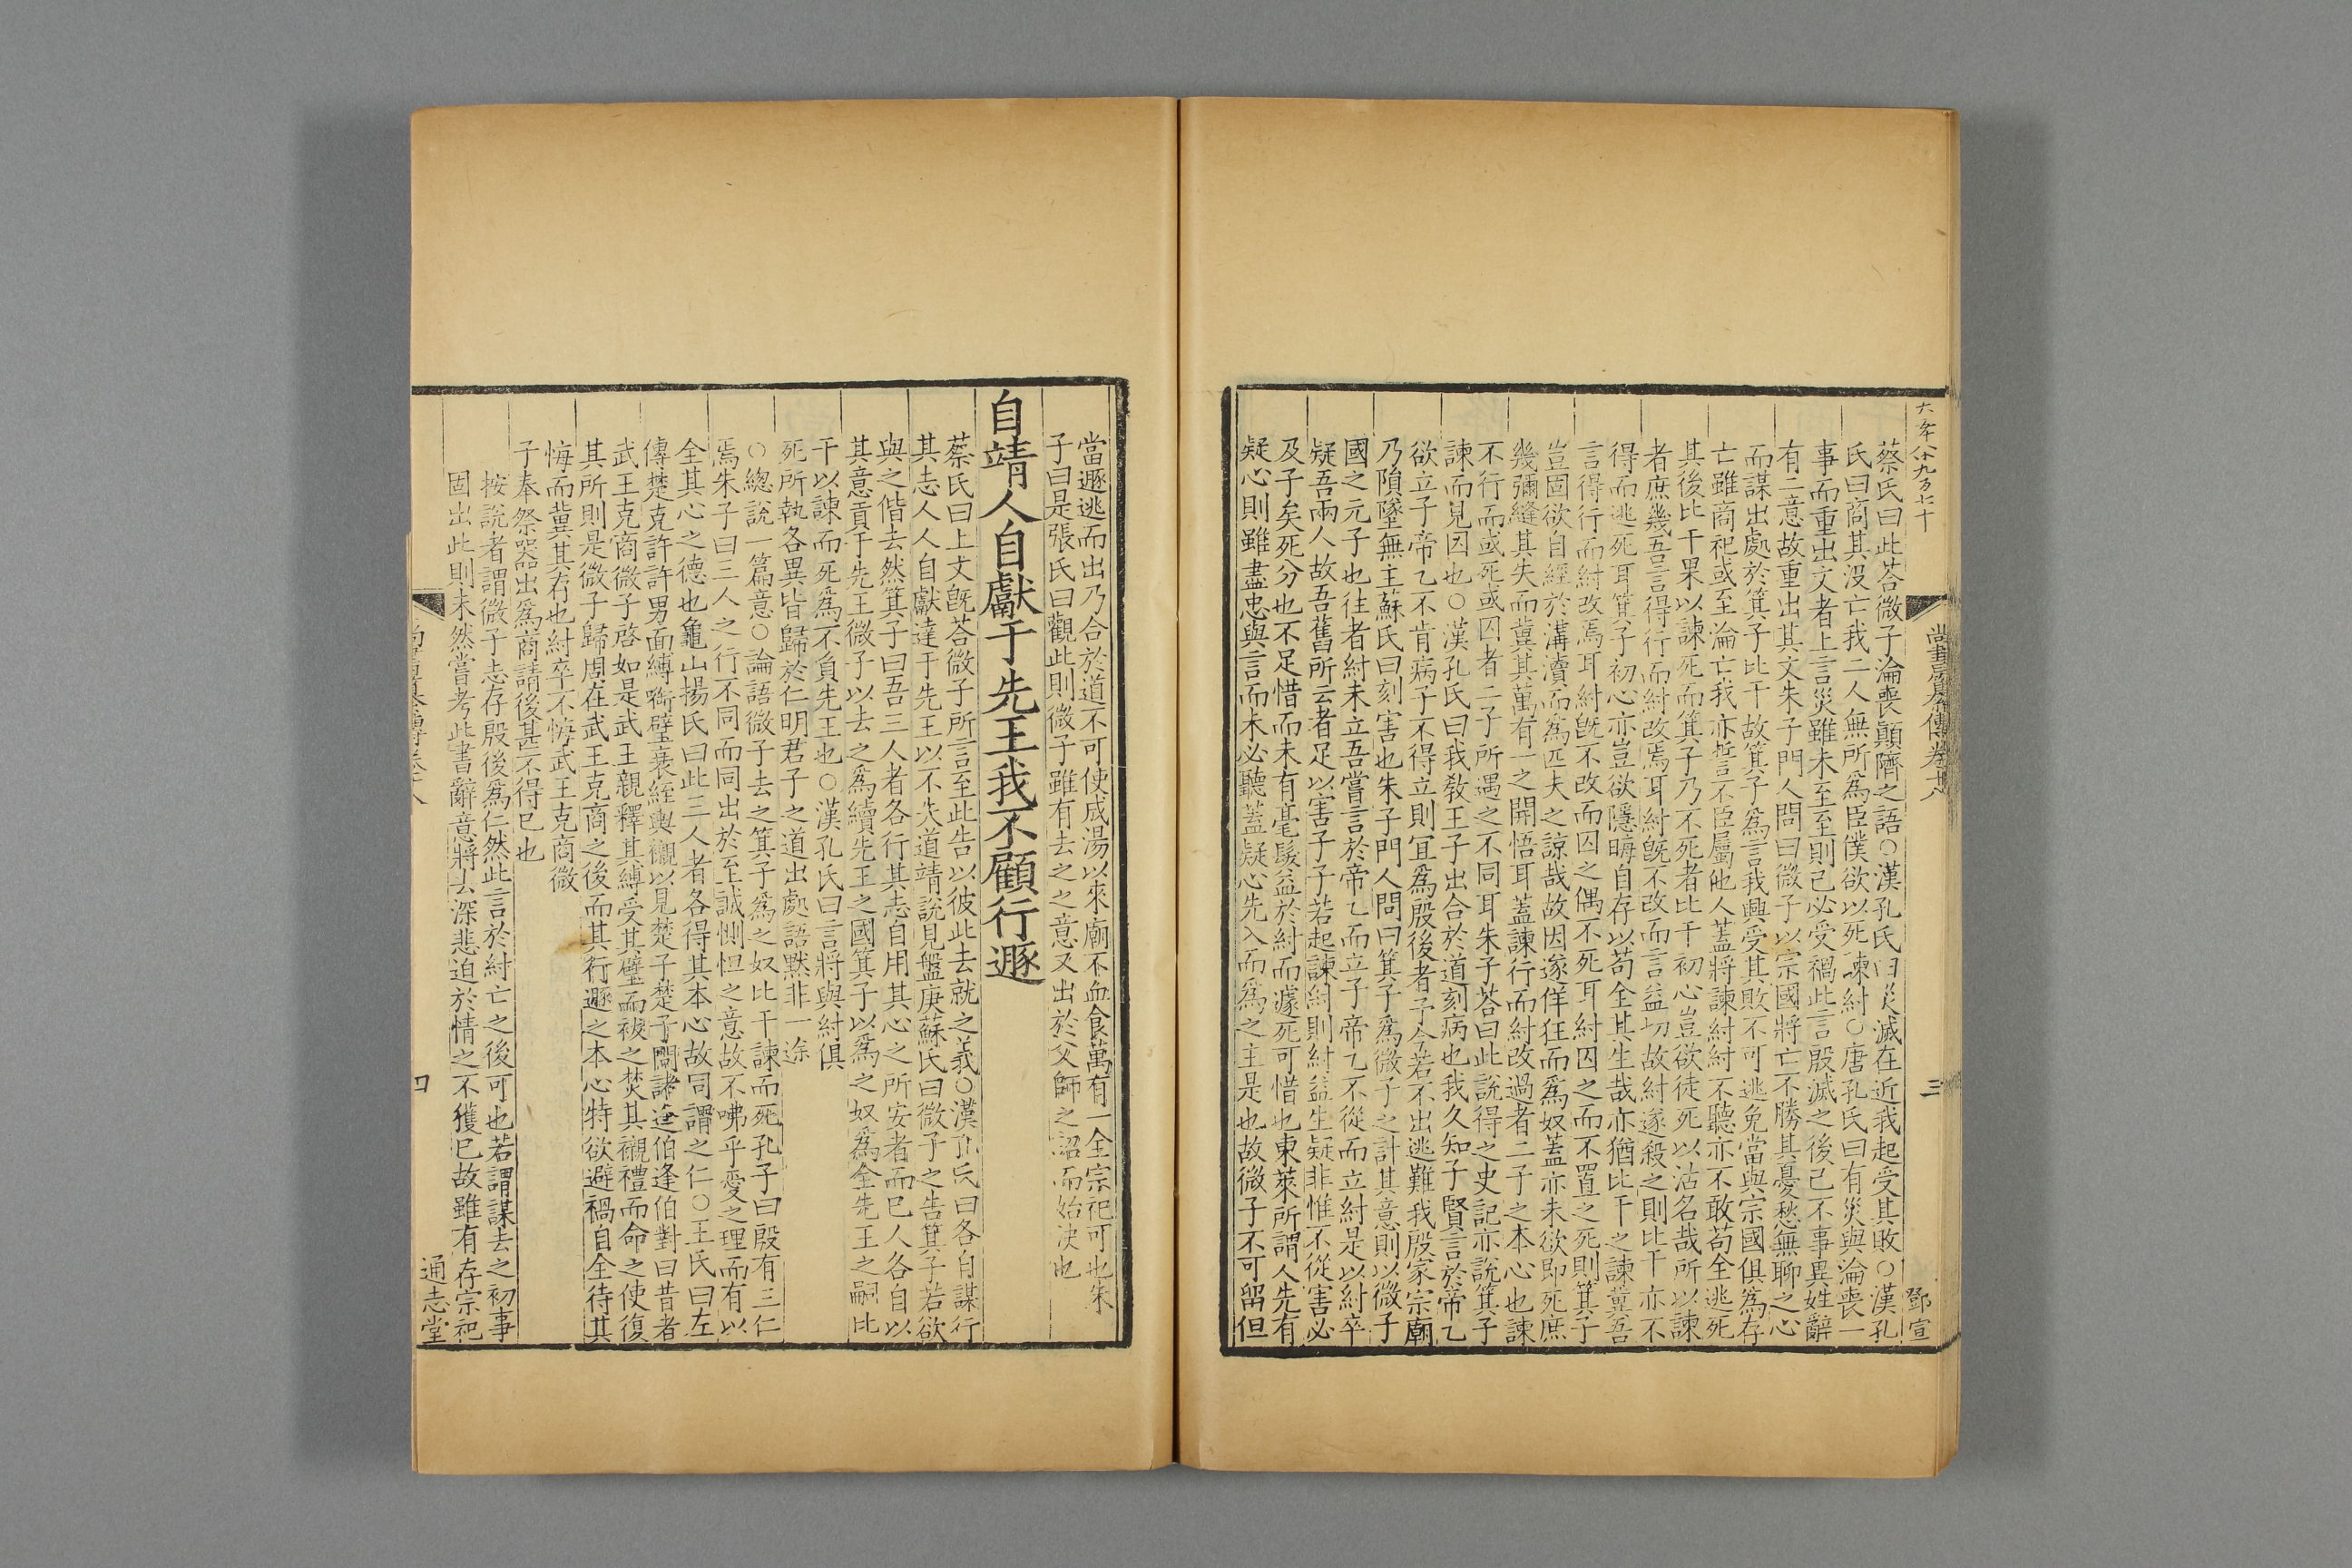 尚書纂傳卷十八
三
鄧宣
蔡氏曰此荅微子淪喪顛隮之語○漢孔氏曰災滅在近我起受其敗○漢孔
氏曰商其没亡我二人無所爲臣僕欲以死諫紂○唐孔氏曰有災與淪喪一
事而重出文者上言災雖未至至則己必受禍此言殷滅之後己不事異姓辭
有二意故重出其文朱子門人問曰微子以宗國將亡不勝其憂愁無聊之心
而謀出處於箕子比干故箕子爲言我興受其敗不可逃免當與宗國俱爲存
亡雖商祀或至淪亡我亦誓言不臣屬他人蓋將諫紂紂不聽亦不敢苟全逃死
其後比干果以諫死而箕子乃不死者比干初心豈欲徒死以沽名哉所以諫
者庶幾吾言得行而紂改焉耳紂旣不改而言益切故紂遂殺之則比干亦不
得而逃死耳箕子初心亦豈欲隱晦自存以苟全其生哉亦猶比干之諫冀吾
言得行而紂改焉耳紂旣不改而囚之偶不死耳紂囚之而不置之死則箕子
豈固欲自經於溝瀆而爲匹夫之諒哉故因遂佯狂而爲奴蓋亦未欲即死庶
幾彌縫其失而冀其萬有一之開悟耳蓋諫行而紂改過者二子之本心也諫
不行而或死或囚者二子所遇之不同耳朱子荅曰此說得之史記亦說箕子
諫而見囚也○漢孔氏曰我敎王子出合於道刻病也我久知子賢言於帝乙
欲立子帝乙不肯病子不得立則宜爲殷後者子今若不出逃難我殷家宗廟
乃隕墜無主蘇氏曰刻害也朱子門人問曰箕子爲微子之計其意則以微子
國之元子也往者紂未立吾嘗言於帝乙而立子帝乙不從而立紂是以紂卒
疑吾兩人故吾舊所云者足以害子子若起諫紂則紂益生疑非惟不從害必
及子矣死分也不足惜而未有毫髮益於紂而遽死可惜也東萊所謂人先有
疑心則雖盡忠與言而未必聽蓋疑心先入而爲之主是也故微子不可留但
當遯逃而出乃合於道不可使成湯以來廟不血食萬有一全宗祀可也朱
子曰是張氏曰觀此則微子雖有去之之意又出於父師之詔而始决也
自靖人自獻于先王我不顧行遯
蔡氏曰上文旣荅微子所言至此告以彼此去就之義○漢孔氏曰各自謀行
其志人人自獻達于先王以不失道靖說見盤庚蘇氏曰微子之告箕子若欲
與之偕去然箕子曰吾三人者各行其志自用其心之所安者而已人各自以
其意貢于先王微子以去之爲續先王之國箕子以爲之奴爲全先王之嗣比
干以諫而死爲不負先王也○漢孔氏曰言將與紂俱
死所執各異皆歸於仁明君子之道出處語默非一途
○總說一篇意○論語微子去之箕子爲之奴比干諫而死孔子曰殷有三仁
焉朱子曰三人之行不同而同出於至誠惻怛之意故不咈乎愛之理而有以
全其心之德也龜山楊氏曰此三人者各得其本心故同謂之仁○王氏曰左
傳楚克許許男面縛銜璧衰絰輿櫬以見楚子楚子問諸逢伯逢伯對曰昔者
武王克商微子啓如是武王親釋其縛受其璧而祓之焚其櫬禮而命之使復
其所則是微子歸周在武王克商之後而其行遯之本心特欲避禍自全待其
悔而冀其存也紂卒不悔武王克商微
子奉祭器出爲商請後甚不得已也
按說者謂微子志存殷後爲仁然此言於紂亡之後可也若謂謀去之初事
固出此則未然嘗考此書辭意將去深悲迫於情之不獲已故雖有存宗祀
四
通志堂